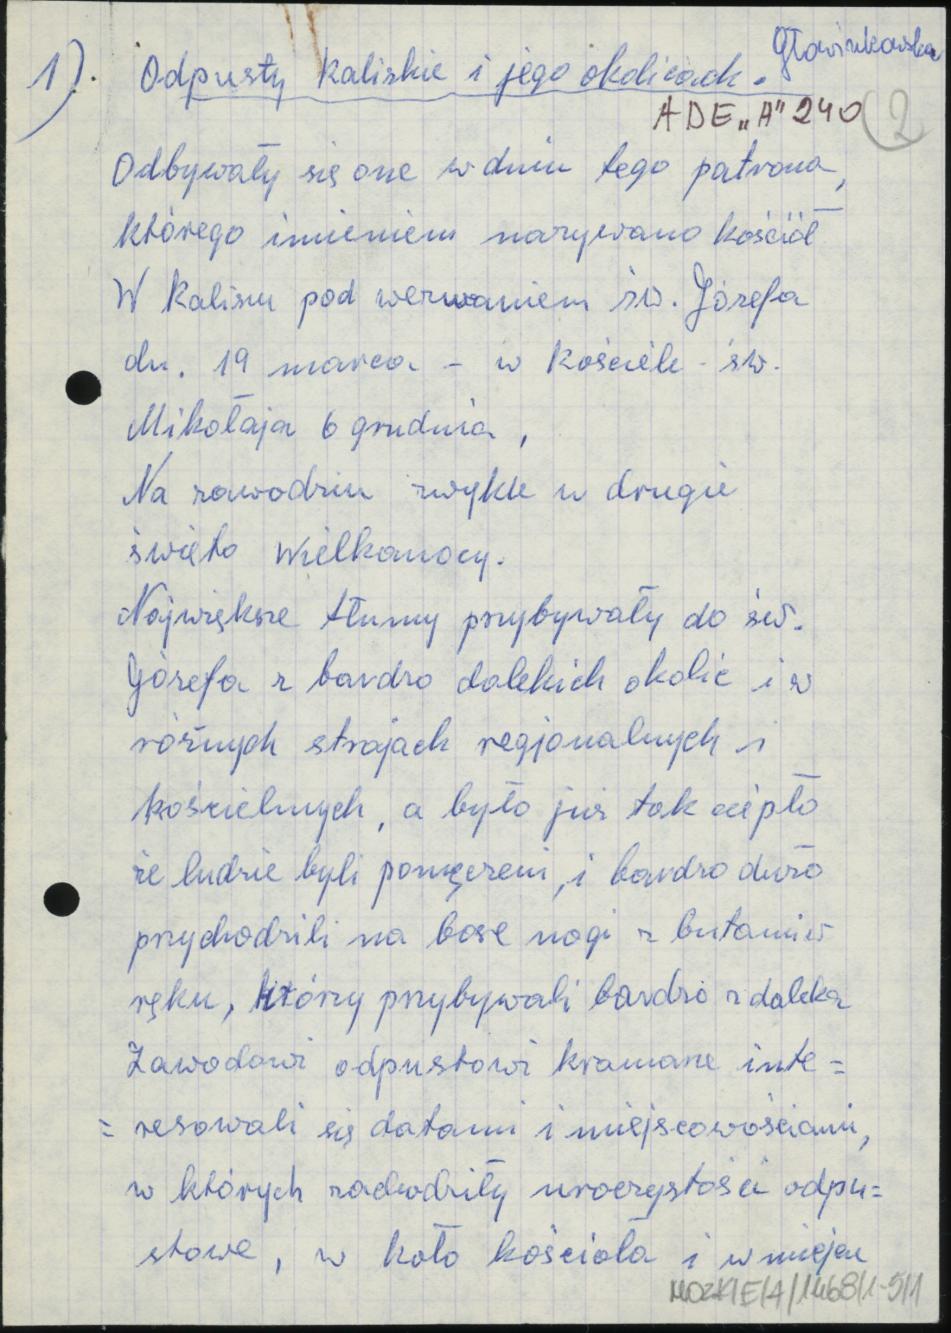 Głowinkowska
1). Odpusty Kaliskie i jego okolicach.
ADE „A" 240
2
Odbywały się one w dniu tego patrona,
którego imieniem nazywano kościół
W Kaliszu pod wezwaniem św. Józefa
dn. 19 marca – w Kościele - św.
Mikołaja 6 grudnia,
Na zawodziu zwykle w drugie
święto Wielkanocy.
Największe tłumy przybywały do św.
Józefa z bardzo dalekich okolic i w
różnych strojach regjonalnych i
kościelnych, a było już tak ciepło
że ludzie byli pomęczeni, i bardzo dużo
przychodzili na bose nogi z butami w
ręku, którzy przybywali bardzo z daleka
Zawodowi odpustowi kramarze inte=
= resowali się datami i miejscowościami,
w których zachodziły uroczystości odpu=
stowe, w koło kościoła i w miejscu
MOZK/E/A/1468/1-5/1